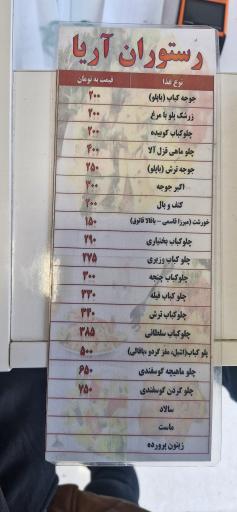 رستوران آریا
نوع غذا قیمت به تومان
جوجه کباب (باپلو) ۲۰۰
زرشک پلو با مرغ ۲۰۰
چلوکباب کوبیده ۲۰۰
چلو ماهی قزل آلا ۴۰۰
جوجه ترش (باپلو) ۲۵۰
اکبر جوجه ۳۰۰
کتف و بال ۲۰۰
خورشت (میرزا قاسمی - باقالا قاتوق) ۱۵۰
چلوکباب بختیاری ۲۹۰
چلو کباب وزیری ۲۷۵
چلو کباب چنجه ۳۰۰
چلو کباب فیله ۳۳۰
چلوکباب ترش ۳۳۰
چلوکباب سلطانی ۳۸۵
پلو کباب(اشپل، مغز گردو ،باقالی) ۵۰۰
چلو ماهیچه گوسفندی ۶۵۰
چلو گردن گوسفندی ۷۵۰
سالاد
ماست
زیتون پرورده